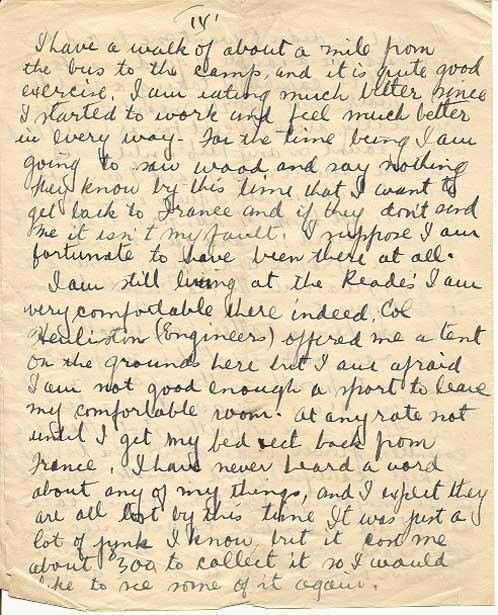 IV
I have a walk of about a mile from
the bus to the camp, and it is quite good
exercise. I am eating much better since
I started to work and feel much better
in every way. For the time being I am
going to saw wood and say nothing
They know by this time that I want to
get back to France and if they don't send
me it isn't my fault. I suppose I am
fortunate to have been there at all.
I am still living at the Reade's I am
very comfortable there indeed, Col
(Engineers) offered me a tent
on the grounds here but I am afraid
I am not good enough a sport to leave
my comfortable room. At any rate not
until I get my bed back from
France. I have never heard a word
about any of my things, and I expect they
are all lost by this time It was just a
lot of junk I know, but it cost me
about $300 to collect it so I would
like to see some of it again.